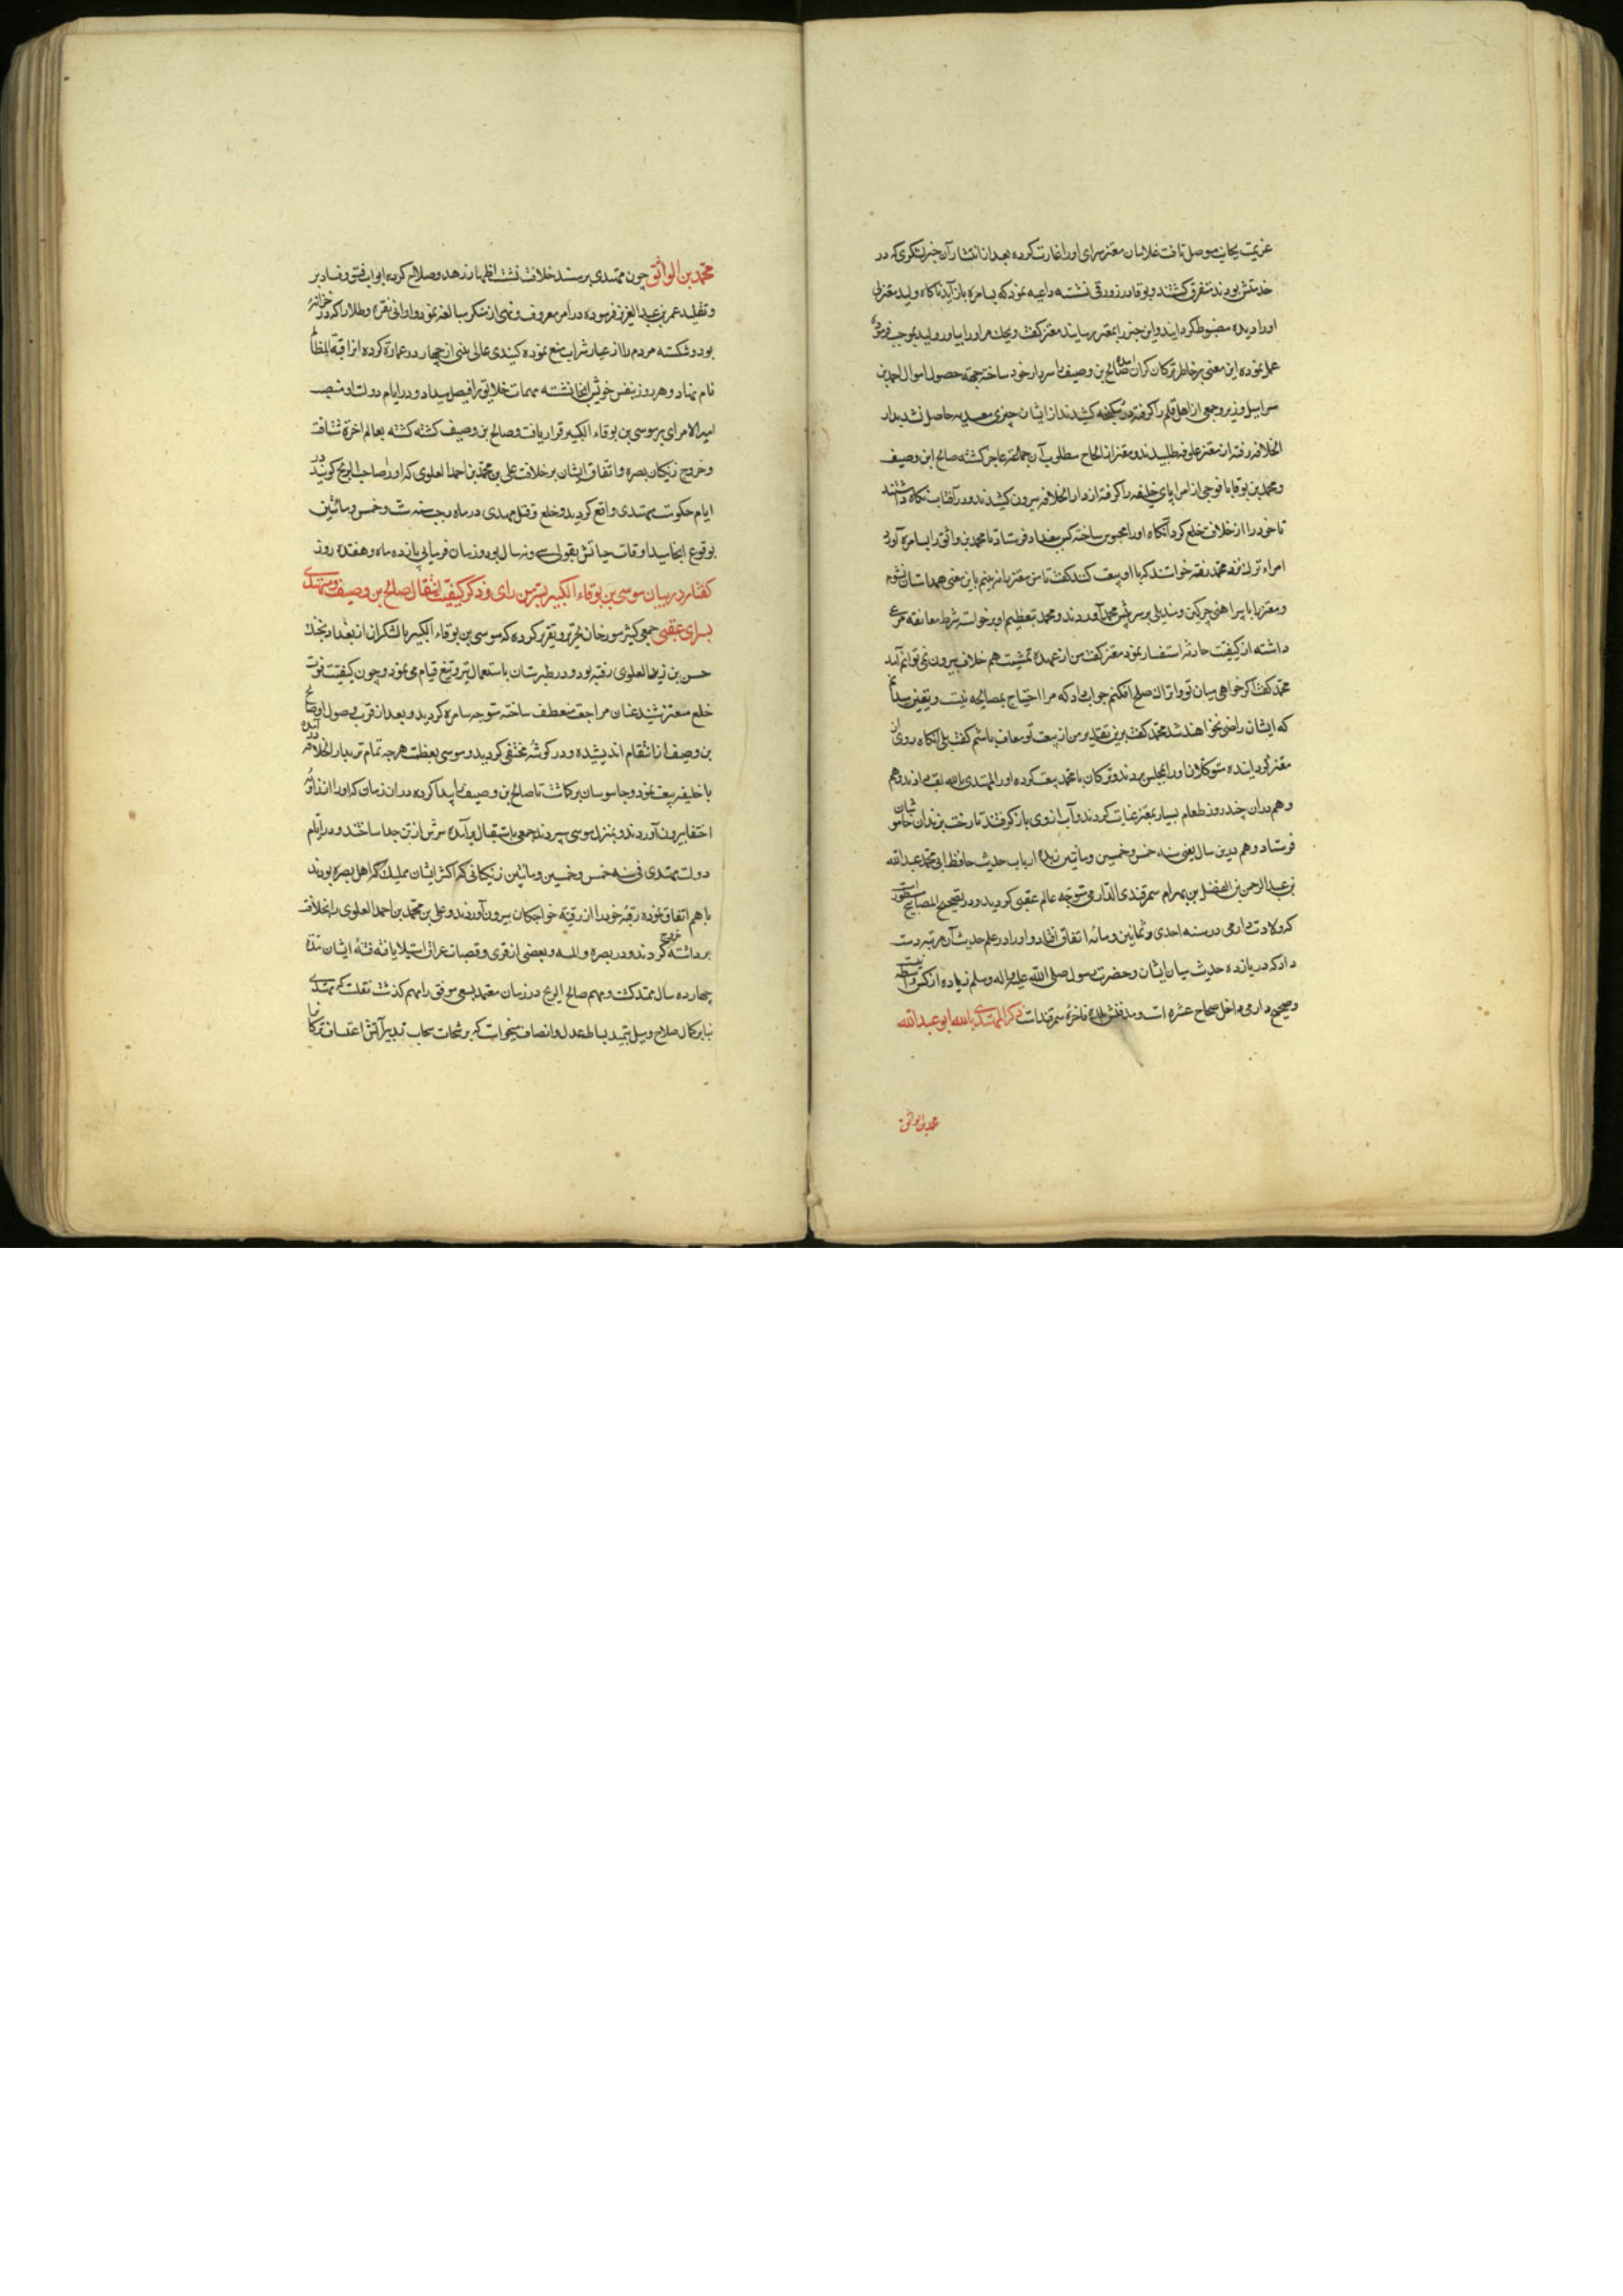 عزیمت بجانب موصل تافت غلامان معتز سرای او را غارت کرده بعد از انتشار آن خبر لشکری که در
خدمتش بودند متفرق کشتند و بوقا در زورقی نشسته داعیه نمود که بسامره باز آید ناکاه ولید مغربی
او را دیده مضبوط کردانید و این خبر را بمعتز رسانید معتز کفت ویحک سر او را بیاور ولید بموجب فرموده
عمل نموده این معنی بر خاطر ترکان کران آمده صالح بن وصیف را سردار خود ساخته جهة حصول اموال احمد بن
سرابیل وزیر و جمعی از اهل قلم را کرفته در شکنجه کشیدند از ایشان چیزی معتد به حاصل نشد بدار
الخلافه رفته از معتز علوفه طلبیدند و معتز از انجاح مطلوب آن جماعة عاجز کشته صالح ابن وصیف
و محمد بن بوقا با فوجی از امرا پای خلیفه را کرفته از دار الخلافه بیرون کشیدند و در آفتاب نکاه داشتند
تا خود را از خلافت خلع کرد آنکاه او را محبوس ساخته کس ببغداد فرستاد تا محمد بن واثق را بسامره آورد
امراء ترک نزد محمد رفته خواستند که با او بیعت کنند کفت تا من معتز را نه بینم باین معنی همداستان نشوم
و معتز را با پیراهنی چرکین و مندیلی بر سر پیش محمد آوردند و محمد بتعظیم او برخواسته شرط معانقه مرعی
داشته از کیفیت حادثه استفسار نمود معتز کفت من از عهده تمشیت مهم خلافت بیرون نمی توانم آمد
محمد کفت اکر خواهی میان تو و اتراک صلح افکنم جواب داد که مرا احتیاج بمصالحه نیست و یقین میدانم
که ایشان راضی نخواهند شد محمد کفت برین تقدیر من از بیعت تو معاف باشم کفت بلی آنکاه روی از
معتز کردانیده متوکلان او را بمجلس بردند و ترکان با محمد بیعت کرده او را المهتدی بالله لقب دادند و هم
و هم دران چند روز طعام بسیار بمعتز عنایت کردند و آب از وی باز کرفتند تا رخت بزندان خاموشان
فرستاد و هم درین سال یعنی سنه خمس و خمسین و ماتین زبده ارباب حدیث حافظ ابی محمد عبدالله
بن عبدالرحمن بن الفضل بن بهرام سمرقندی الدارمی متوجه عالم عقبی کردید و در تصحیح المصابیح مسطور است
که ولادت دارمی در سنه احدی و ثمانین و مائه اتفاق افتاد و او را در علم حدیث آن مرتبه دست
داد که در یازده حدیث میان ایشان و حضرت رسول صلی الله علیه و اله وسلم زیاده از سه کس واسطه نیست
و صحیح دارمی داخل صحاح عشره است و مدفنش بلده فاخرهٔ سمرقند است ذکر المهتدی بالله ابو عبدالله
محمد بن الواثق
محمد بن الواثق چون مهتدی بر مسند خلافت نشست اظهار زهد و صلاح کرده ابواب فسق و فساد بر
و تقلید عمر بن عبدالعزیز فرموده در امر معروف و نهی از منکر مبالغه نمود و اوانی نقره و طلا را که در خزانه
بود و شکسته مردم را از عیار شراب منع نموده کنبدی عالی مبنی از چهار در عمارة کرده انرا قبة المظالم
نام نهاد و هر روز بنفس خویش انجا نشسته مهمات خلایق را فیصل میداد و در ایام دولت او منصب
امیر الامرای بر موسی بن بوقاء الکبیر قرار یافت و صالح بن وصیف کشته کشته بعالم اخرة شتافت
و خروج زنکیان بصره و اتفاق ایشان بر خلافت علی بن محمد بن احمد العلوی که او را صاحب الزنج کویند در
ایام حکومت مهتدی واقع کردید و خلع و قتل مهدی در ماه رجب سنه ست و خمس و مائتین
بوقوع انجامید اوقات حیاتش بقولی سی و نه سال بود و زمان فرمانی یازده ماه و هفده روز
کفتار در بیان موسی بن بوقاء الکبیر بسر من رای و ذکر کیفیت انتقال صالح بن وصیف و مهتدی
بسرای عقبی جمعی کثیر مورخان تحریر و تقریر کرده که موسی بن بوقاء الکبیر با لشکر کران از بغداد بجنک
حسن بن زید العلوی رفته بود و در طبرستان باستعمال تیر و تیغ قیام می نمود و چون کیفیت فوت
خلع معتز شنید عنان مراجعت منعطف ساخته متوجه سامره کردید و بعد از قرب وصول او صالح
بن وصیف از انتقام اندیشیده و در کوشهٔ مختفی کردید و موسی بعظمت هر چه تمام تر بدار الخلافه در آمده
با خلیفه بیعت نمود و جاسوسان بر کماشت تا صالح بن وصیف را پیدا کرده دران زمان که او را از زاویهٔ
اختفا بیرون آوردند و بمنزل موسی سپردند جمعی باستقبال وی آمده سرش از تن جدا ساختند و در ایام
دولت مهتدی فی سنه خمس و خمسین و ماتین زنکیانی که اکثر ایشان مملیک اهل بصره بودند
با هم اتفاق نموده رقبهٔ خود را از رقیه خواجکان بیرون آوردند و علی بن محمد بن احمد العلوی را بخلافت
برداشته خروج کردند و در بصره و ابله و بعضی از قری و قصبات عراق استیلا یافته فتنهٔ ایشان مدة
چهارده سال ممتد کشت و مهم صالح الزنج در زمان معتمد بسعی موفق را مهم کذشت نقلست که مهتدی
بنابر کمال صلاح و میل بتمهید بساط عدل و انصاف میخواست که برشحات سحاب تدبیر آتش اعتساف ترکان را